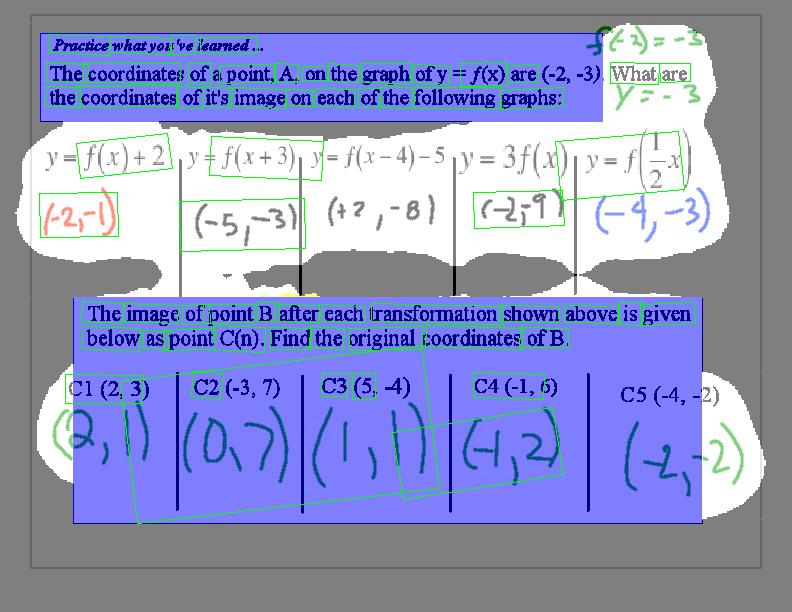 Practice what you've learned ...
f(-2) = -3
The coordinates of a point, A, on the graph of y = f(x) are (-2, -3). What are
the coordinates of it's image on each of the following graphs:
y = -3
y = f(x) + 2 y = f(x + 3) y = f(x − 4) − 5 y = 3f(x) y = f(1/2 x)
(-2,-1) (-5,-3) (+2,-8) (-2,-9) (-4,-3)
The image of point B after each transformation shown above is given
below as point C(n). Find the original coordinates of B.
C1 (2, 3) C2 (-3, 7) C3 (5, -4) C4 (-1, 6) C5 (-4, -2)
(2,1) (0,7) (1,1) (-1,2) (-2,-2)